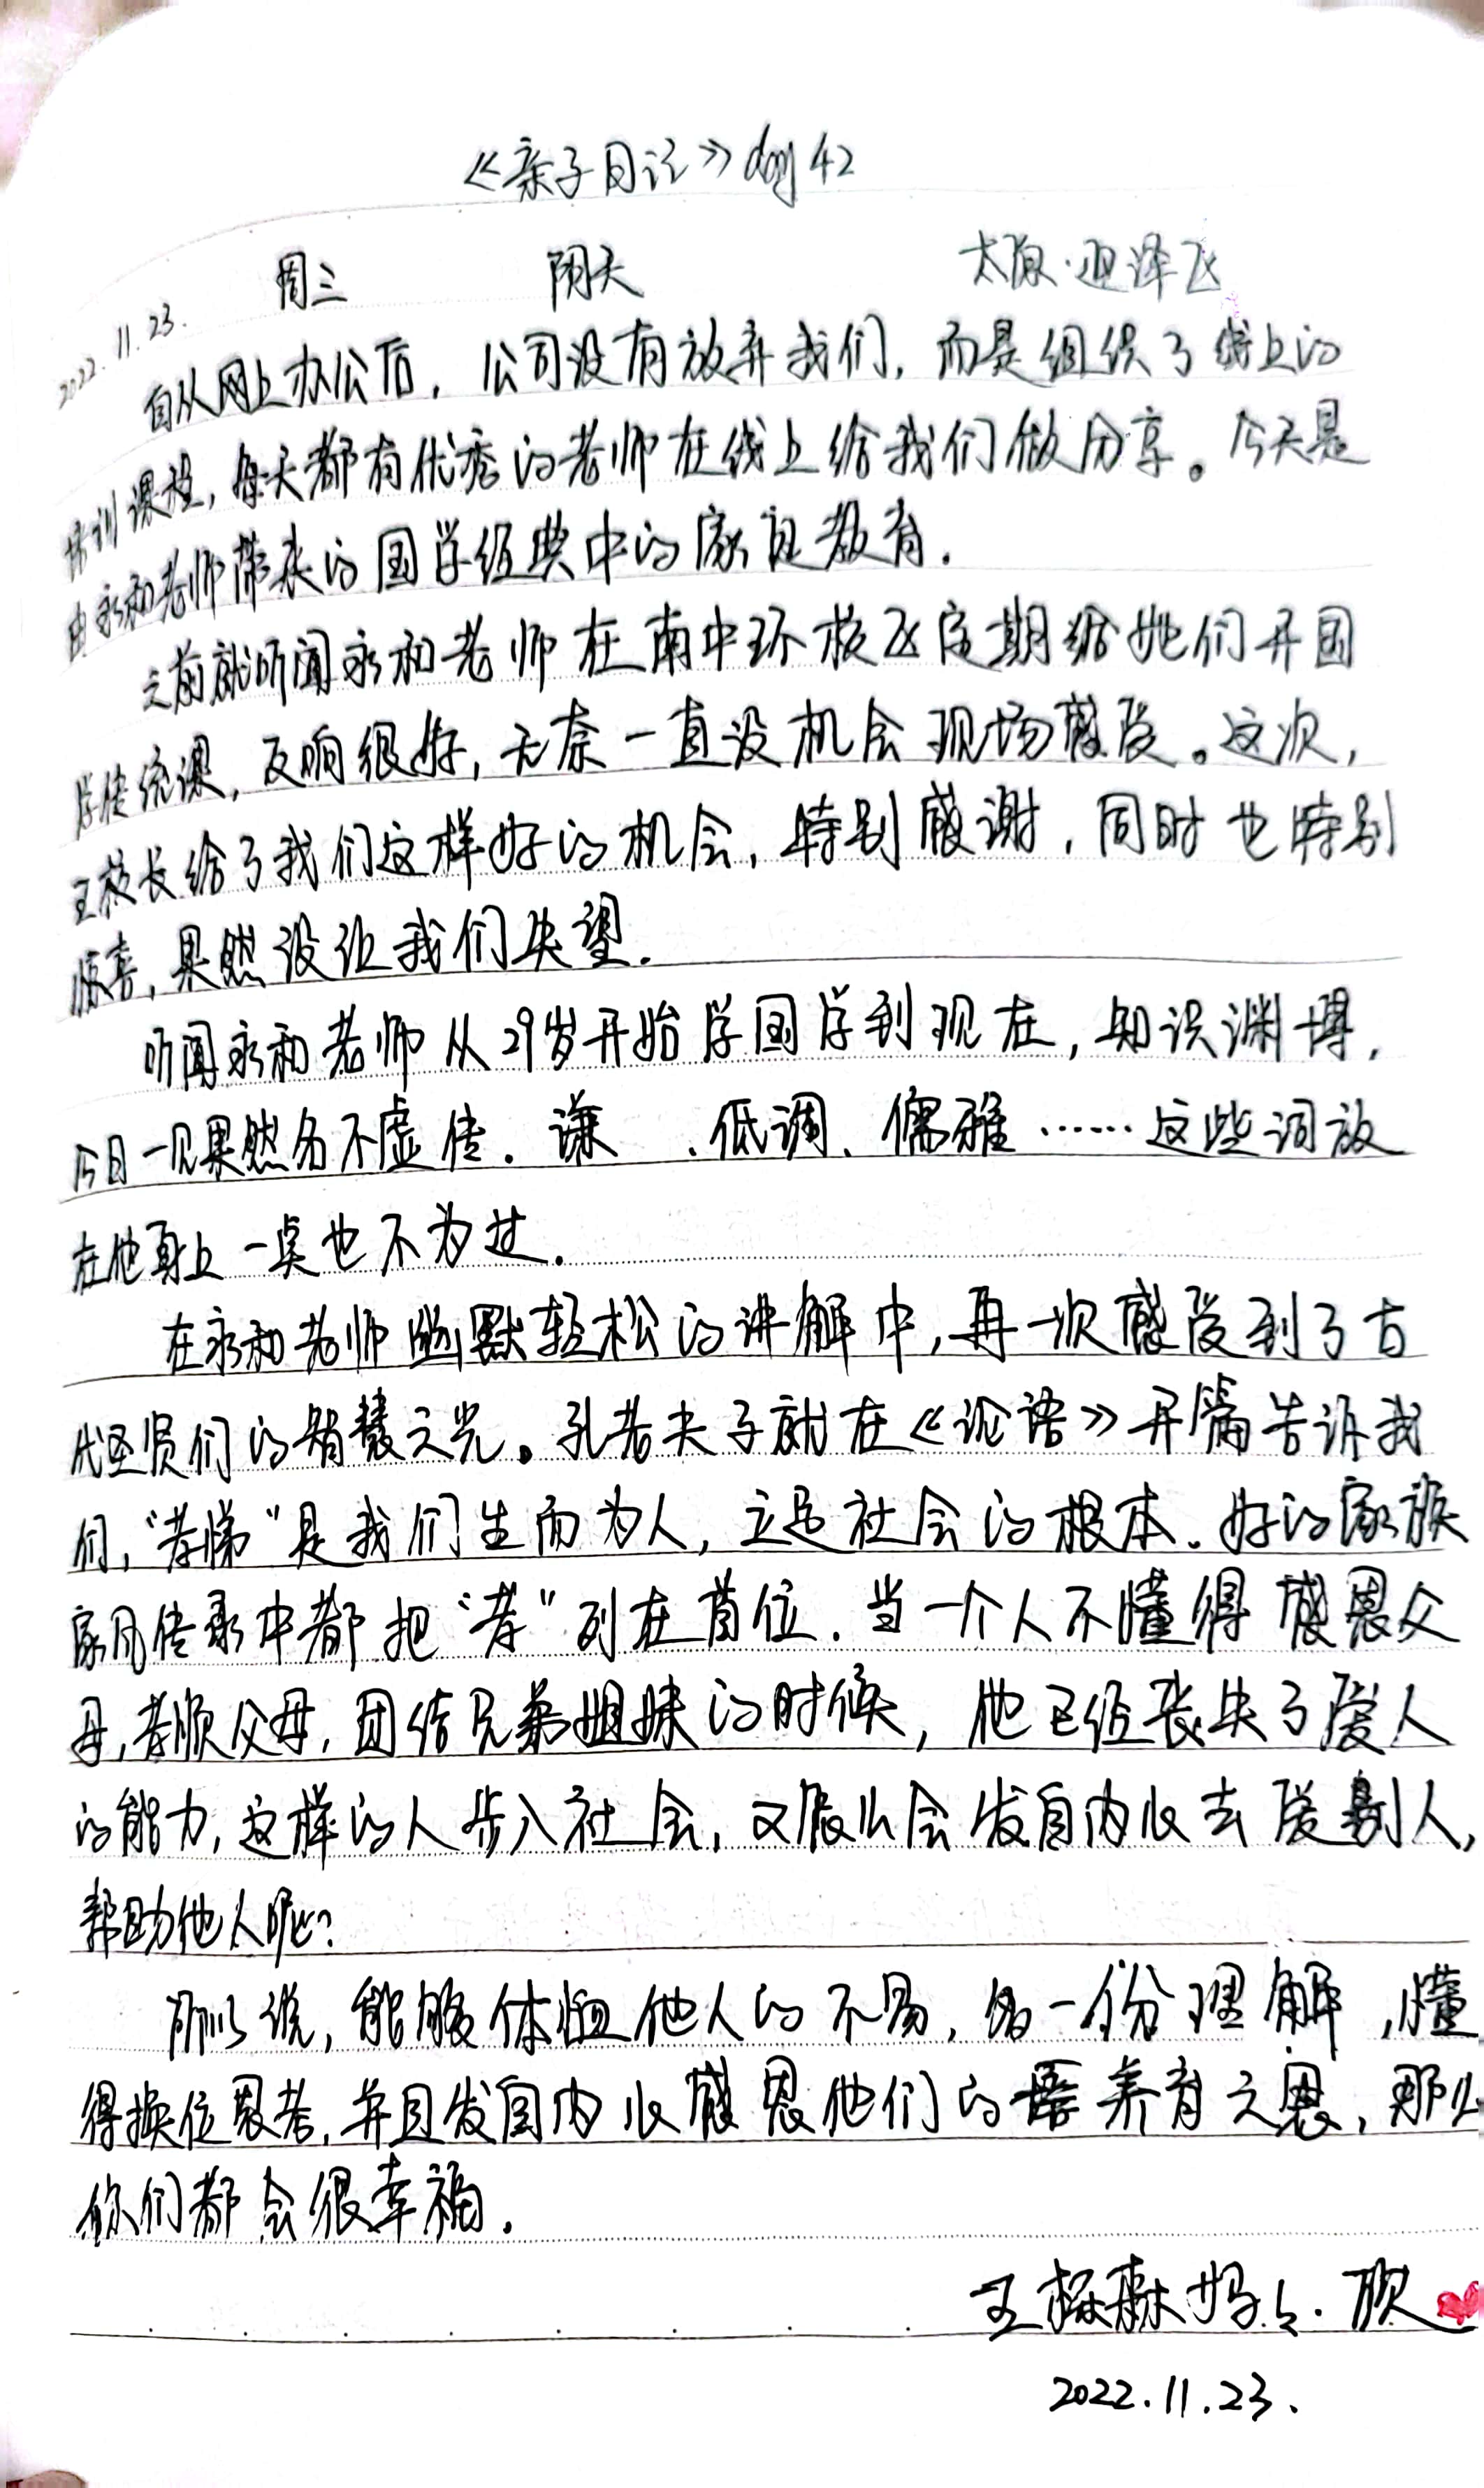 《亲子日记》day 42
2022.11.23. 周三 阴天 太原·迎泽区
自从网上办公后，公司没有放弃我们，而是组织了线上的
培训课程，每天都有优秀的老师在线上给我们做分享。今天是
由永和老师带来的国学经典中的家庭教育.
之前就听闻永和老师在南中环校区定期给她们开国
学传统课，反响很好，无奈一直没机会现场感受。这次，
王校长给了我们这样好的机会，特别感谢，同时也特别
惊喜，果然没让我们失望.
听闻永和老师从29岁开始学国学到现在，知识渊博，
今日一见果然名不虚传. 谦 、低调、儒雅……这些词放
在他身上一点也不为过.
在永和老师幽默轻松的讲解中，再一次感受到了古
代圣贤们的智慧之光。孔老夫子就在《论语》开篇告诉我
们，“孝悌”是我们生而为人，立足社会的根本. 好的家族
家风传承中都把“孝”列在首位. 当一个人不懂得感恩父
母，孝顺父母，团结兄弟姐妹的时候，他已经丧失了爱人
的能力，这样的人步入社会，又怎么会发自内心去爱别人，
帮助他人呢?
所以说，能够体恤他人的不易，多一份理解，懂
得换位思考，并且发自内心感恩他们的养育之恩，那么
你们都会很幸福.
王 森妈妈. 欣
2022.11.23.